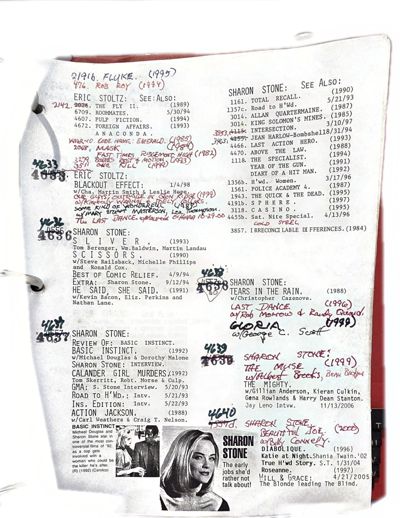 2191b. FLUKE. (1995)
476. ROB ROY (1994)
ERIC STOLTZ: SEE ALSO:
2142. THE FLY II. (1989)
6709. ROOMMATES. 5/30/94
4607. PULP FICTION. (1994)
4672. FOREIGN AFFAIRS. (1993)
ANACONDA.
CODE NAME: EMERALD. (1985)
4633
ERIC STOLTZ:
BLACKOUT EFFECT: 1/4/98
w/Cha. Martin Smith & Leslie Hope.
SOME KIND OF WONDERFUL
w/MARY STUART MASTERSON, Lea Thompson.
4636
4636
SHARON STONE:
SLIVER. (1993)
Tom Berenger, Wm. Baldwin, Martin Landau
SCISSORS. (1990)
w/Steve Railsback, Michelle Phillips
and Ronald Cox.
BEST OF COMIC RELIEF. 4/9/94
EXTRA: Sharon Stone. 9/12/94
HE SAID, SHE SAID. (1991)
w/Kevin Bacon, Eliz. Perkins and
Nathan Lane.
4637
4637
SHARON STONE:
REVIEW OF: BASIC INSTINCT.
BASIC INSTINCT. (1992)
w/Michael Douglas & Dorothy Malone
SHARON STONE: INTERVIEW.
CALANDER GIRL MURDERS. (1992)
Tom Skerritt, Robt. Morse & Culp.
GMA: S. Stone Interview. 5/20/93
ROAD TO H'WD.: Intv. 5/21/93
INS. EDITION: Intv. 5/22/93
ACTION JACKSON. (1988)
w/Carl Weathers & Craig T. Nelson.
BASIC INSTINCT
Michael Douglas and
Sharon Stone star in
one of the most con-
troversial films of '92,
as a cop gets
involved with a
woman who could
be the killer he's after.
(R) (1992) (Cinemax
SHARON
STONE
The early
jobs she'd
rather not
talk about!
SHARON STONE: SEE ALSO:
1161. TOTAL RECALL. (1990)
1357c. Road to H'Wd. 5/21/93
3014. ALLAN QUARTERMAINE. (1987)
3014. KING SOLOMON'S MINES. (1985)
INTERSECTION. 3/10/97
JEAN HARLOW-Bombshell 8/31/94
1466. LAST ACTION HERO. (1993)
4470. ABOVE THE LAW. (1988)
1118. THE SPECIALIST. (1994)
YEAR OF THE GUN. (1991)
DIARY OF A HIT MAN. (1992)
1356b. H'wd. Women. 3/17/96
1961. POLICE ACADEMY 4. (1987)
1943. THE QUICK & THE DEAD. (1995)
4191b. SPHERE. (1997)
3118. CASINO. (1995)
4455b. Sat. Nite Special. 4/13/96
COLD STEEL
3857. IRRECONCILABLE DIFFERENCES. (1984)
4638
SHARON STONE:
TEARS IN THE RAIN. (1988)
w/Christopher Cazenove.
LAST DANCE (1996)
w/Rob Morrow & Randy Quaid.
GLORIA (1999)
w/George C. Scott
4639
SHARON STONE:
THE MUSE (1999)
w/Albert Brooks, Jeff Bridges
THE MIGHTY.
w/Gillian Anderson, Kieran Culkin,
Gena Rowlands & Harry Dean Stanton.
Jay Leno Intvw. 11/13/2006
4640
SHARON STONE:
BEAUTIFUL JOE. (2000)
w/Billy Connolly.
DIABOLIQUE. (1996)
Katie at Night. Shania Twain. '02
True H'wd Story. S.T. 1/31/04
Roseanne. (1997)
WILL & GRACE: 4/21/2005
The Blonde leading The Blind.